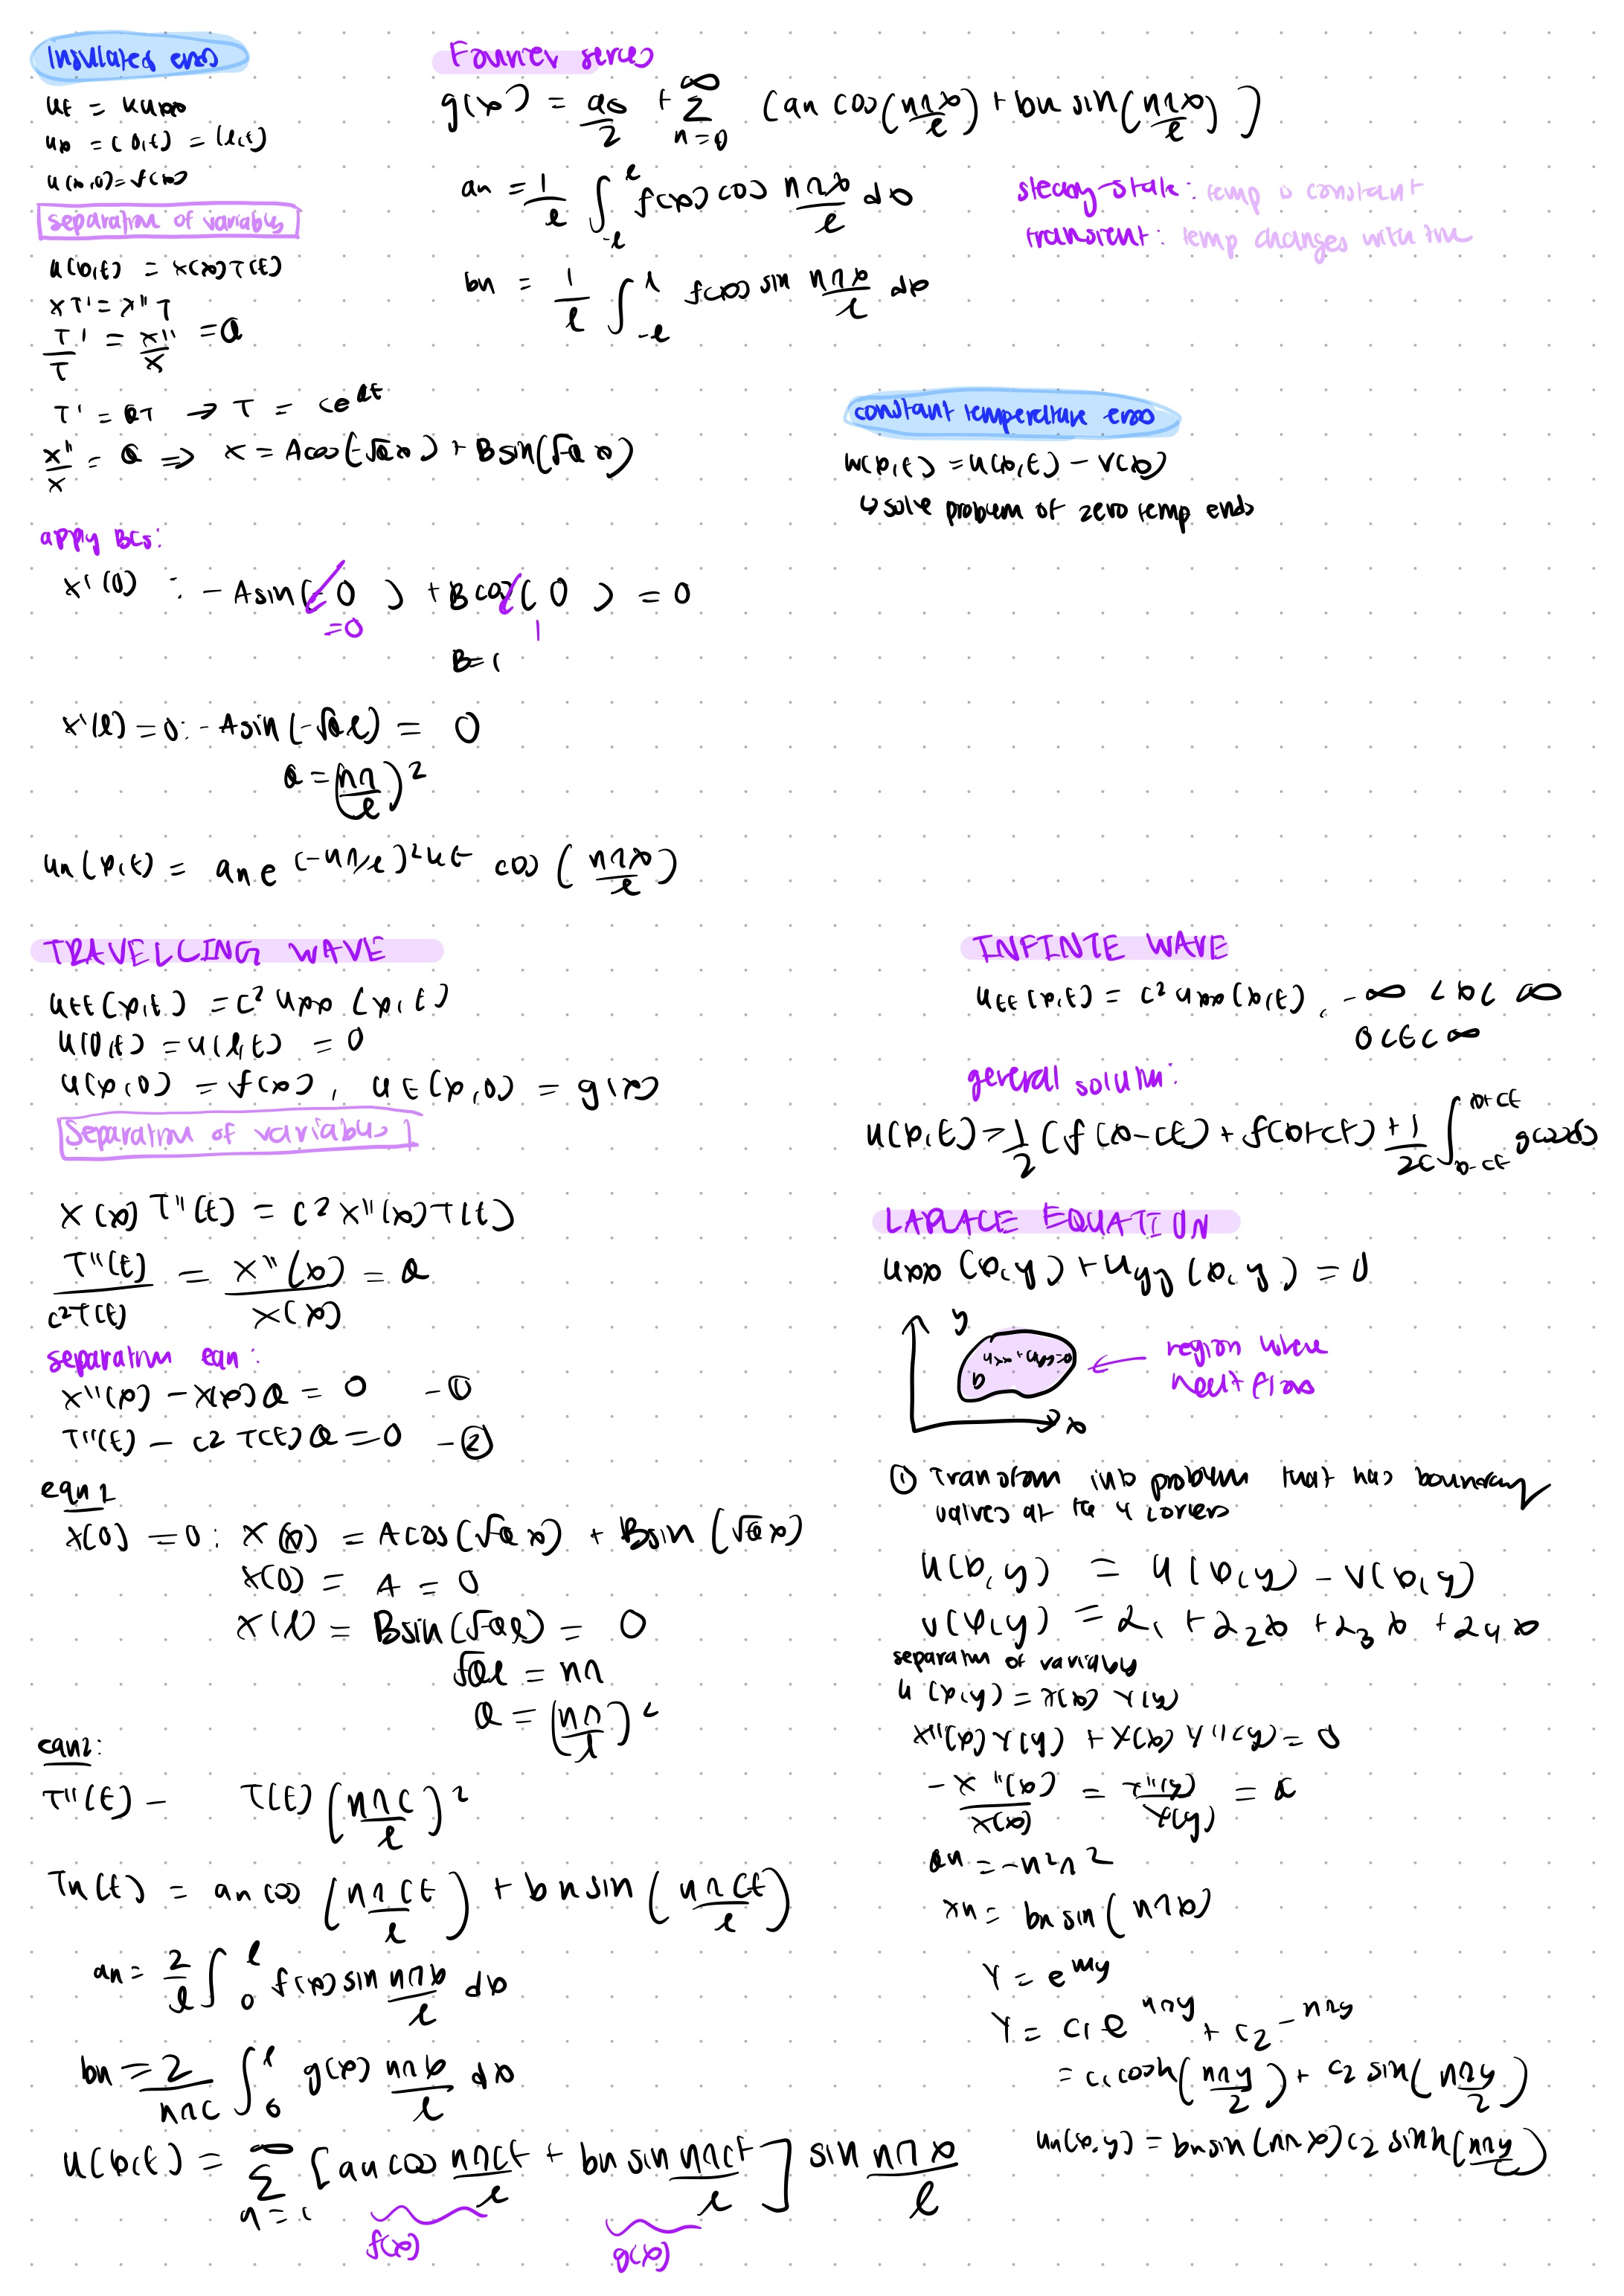 Insulated ends
ut = kuxx
ux = (0,t) = (l,t)
u(x,0) = f(x)
separation of variables
u(x,t) = X(x)T(t)
XT' = X''T
T'/T = X''/X = a
T' = aT → T = ce^at
X''/X = a ⇒ X = Acos(-√a x) + Bsin(√-a x)
apply BCs:
X'(0) : - Asin( 0 ) + Bcos( 0 ) = 0
=0 1
B = (
X'(l) = 0: - Asin(-√a l) = 0
a = (nπ/l)^2
un(x,t) = an e^(-nπ/l)^2kt cos(nπx/l)
Fourier series
g(x) = a0/2 + ∑ n=0 ∞ (an cos(nπx/l) + bn sin(nπx/l))
an = 1/l ∫ -l l f(x) cos nπx/l dx
bn = 1/l ∫ -l l f(x) sin nπx/l dx
steady-state: temp is constant
transient: temp changes with time
constant temperature ends
w(x,t) = u(x,t) - v(x)
↳ solve problem of zero temp ends
TRAVELLING WAVE
utt(x,t) = c² uxx (x,t)
u(0,t) = u(l,t) = 0
u(x,0) = f(x), ut(x,0) = g(x)
Separation of variables
X(x)T''(t) = c² X''(x)T(t)
T''(t)/c²T(t) = X''(x)/X(x) = a
separation eqn:
X''(x) - X(x)a = 0 -①
T''(t) - c² T(t)a = 0 -②
eqn 1
X(0) = 0: X(x) = Acos(√a x) + Bsin(√a x)
X(0) = A = 0
X(l) = Bsin(√-a l) = 0
√a l = nπ
a = (nπ/l)²
eqn 2:
T''(t) - T(t)(nπc/l)²
Tn(t) = an cos(nπct/l) + bn sin(nπct/l)
an = 2/l ∫ 0 l f(x) sin nπx/l dx
bn = 2/nπc ∫ 0 l g(x) nπx/l dx
u(x,t) = ∑ n=1 ∞ [an cos nπct/l + bn sin nπct/l] sin nπx/l
f(x) g(x)
INFINTE WAVE
utt(x,t) = c² uxx(x,t), -∞ < x < ∞
0 < t < ∞
general solutn:
u(x,t) = 1/2 (f(x-ct) + f(x+ct) + 1/2c ∫ x-ct x+ct g(s)ds
LAPLACE EQUATION
uxx (x,y) + uyy (x,y) = 0
y
uxx + uyy = 0
D
x
region where
heat flows
① Transform into problem that has boundary
values at the 4 corners
u(x,y) = u(x,y) - v(x,y)
v(x,y) = α1 + α2x + α3x + α4x
separatn of variably
u(x,y) = X(x) Y(y)
X''(x)Y(y) + X(x)Y''(y) = 0
-X''(x)/X(x) = Y''(y)/Y(y) = a
an = -n²π²
xn = bn sin(nπx)
Y = e^my
Y = c1e^nπy + c2^-nπy
= c1cosh(nπy/2) + c2 sin(nπy/2)
un(x,y) = bn sin(nπx) c2 sinh(nπy/2)